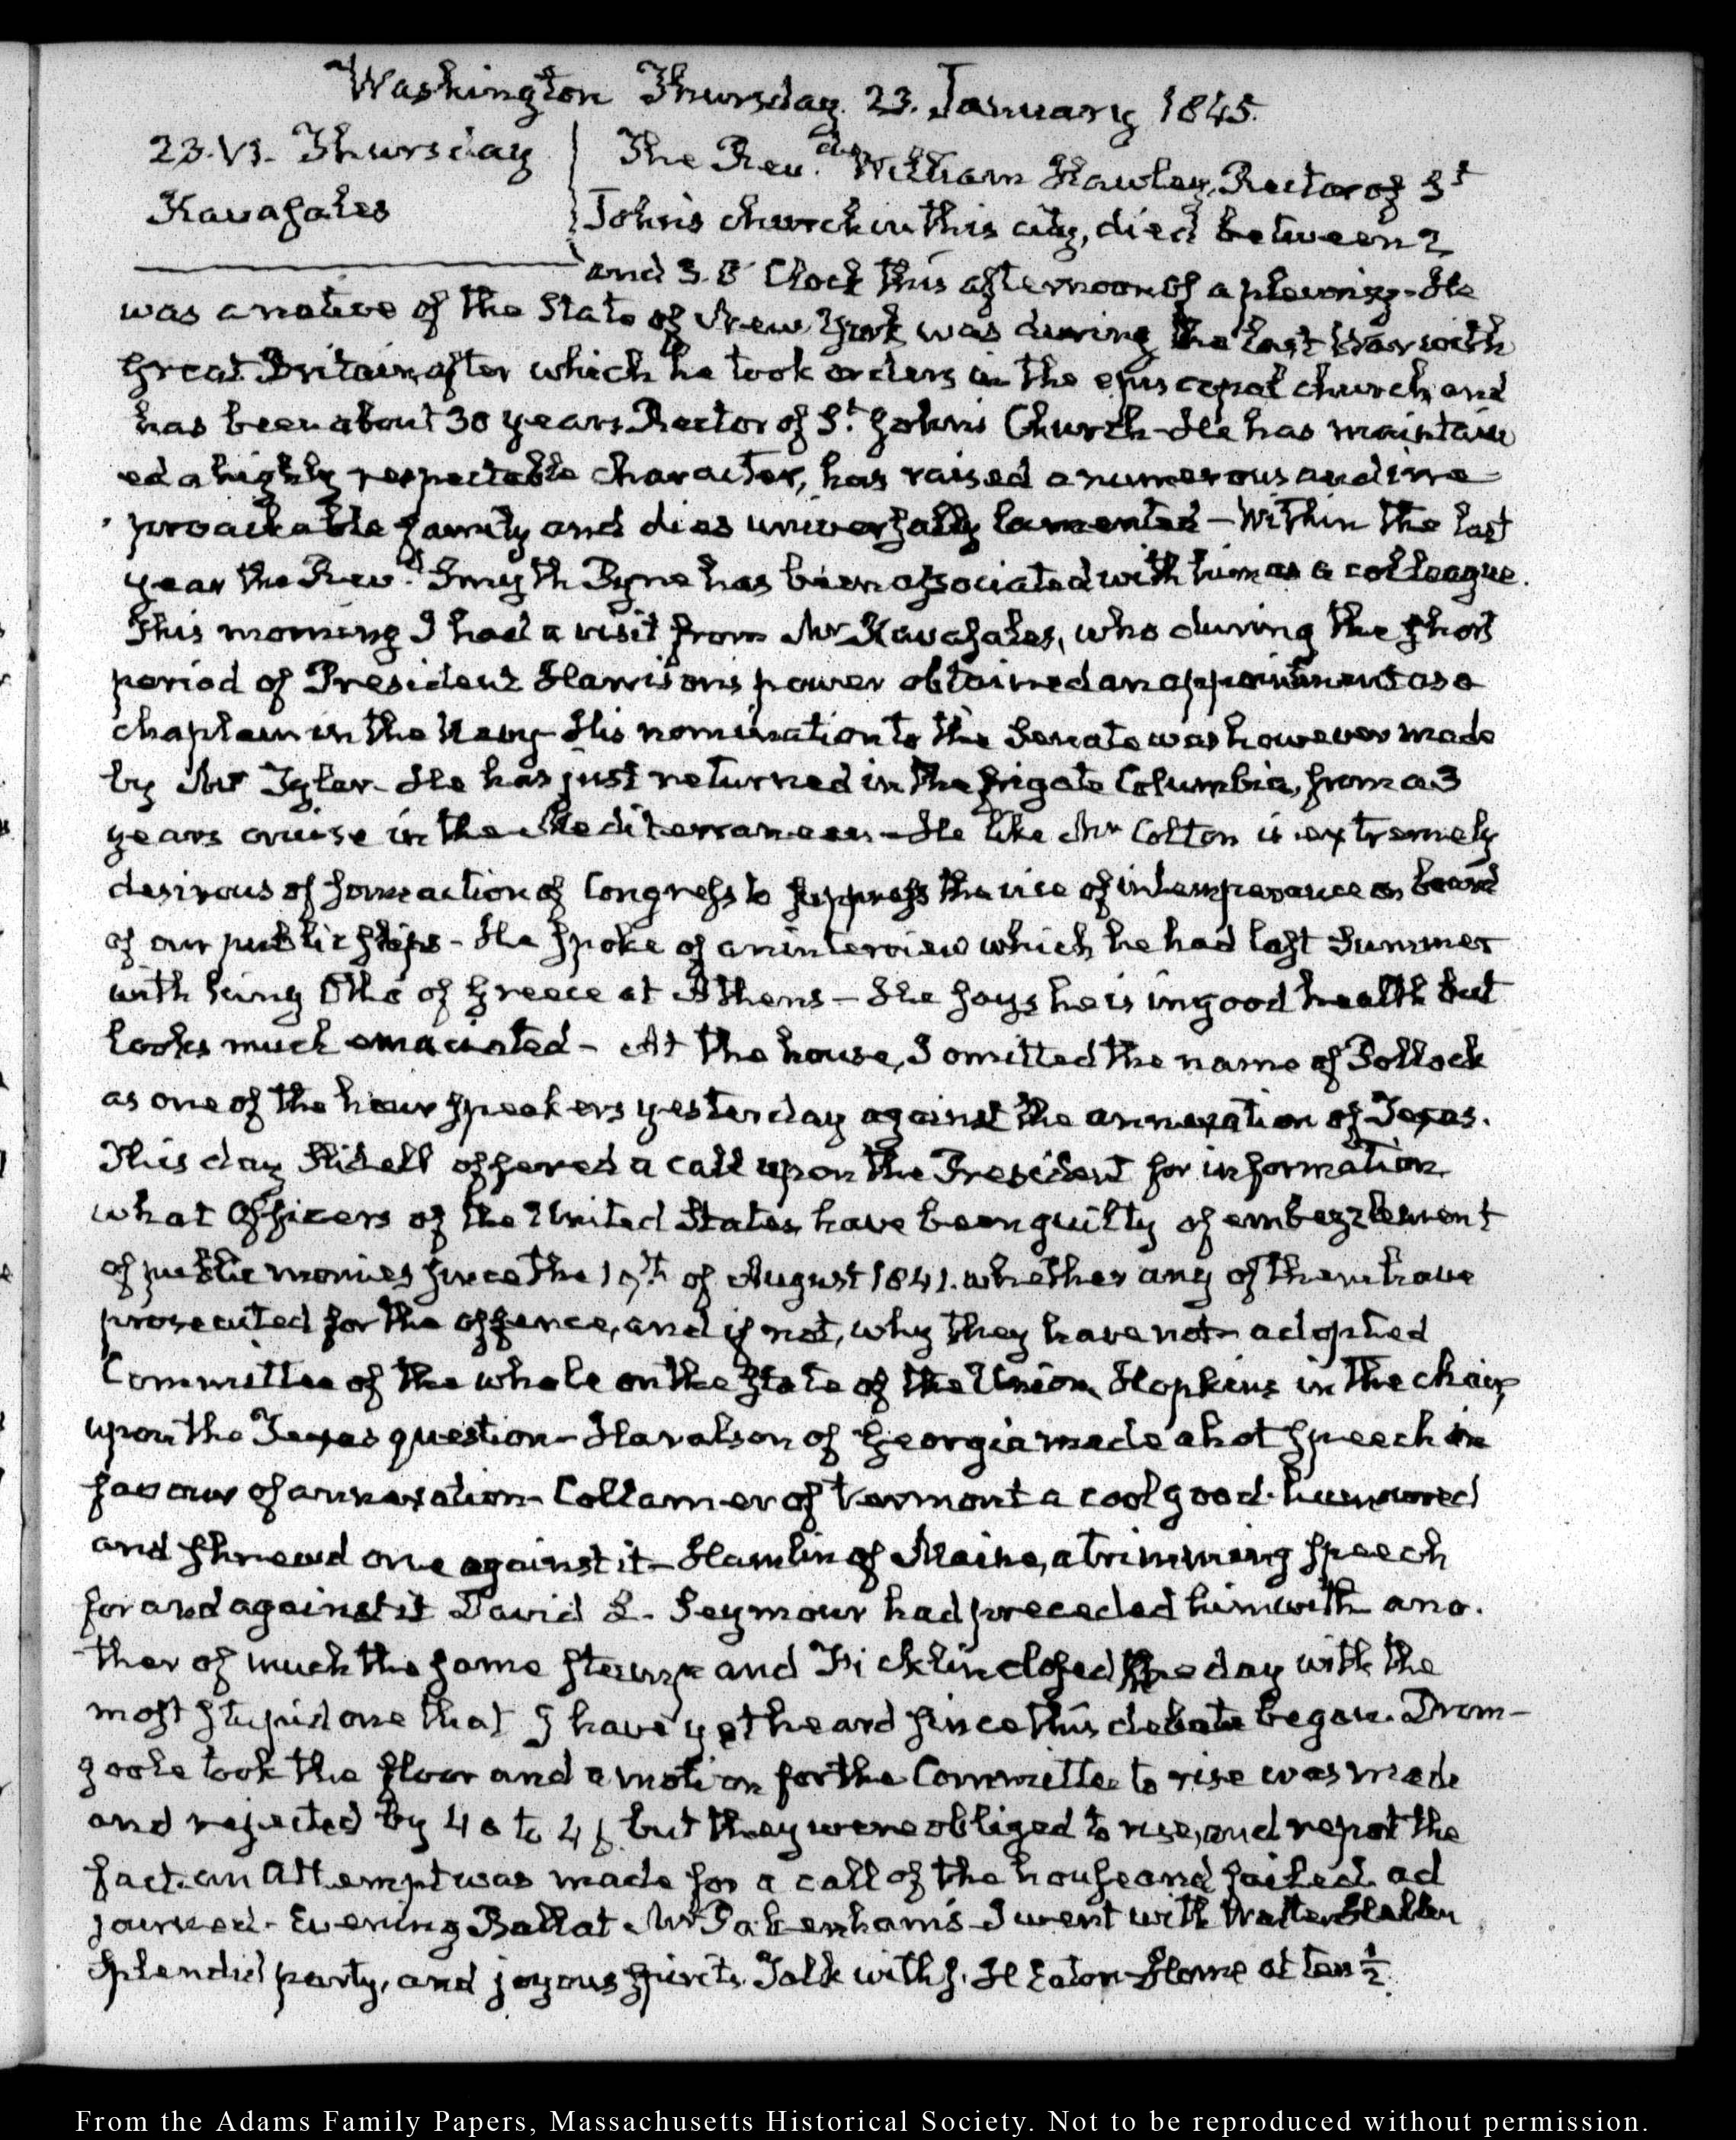 Washington Thursday 23. January 1845.
23. VI. Thursday
Kavasales
The Revd. William Hawley, Rector of St
John's church in this city, died between 2
and 3. O'Clock this afternoon of a pleurisy - He
was a native of the State of New York was during the last War with
Great Britain, after which he took orders in the episcopal church, and
has been about 30 years Rector of St. John's Church - He has maintain
ed a highly respectable character, has raised a numerous and irre
proachable family and dies universally lamented - Within the last
year the Revd. Smyth Pyne has been associated with him as a colleague.
This morning I had a visit from Mr Kavasales, who during the short
period of President Harrison's power obtained an appointment as a
chaplain in the Navy - His nomination to the Senate was however made
by Mr Tyler - He has just returned in the frigate Columbia, from a 3
years cruise in the Mediterranean - He like Mr Colton is extremely
desirous of some action of Congress to suppress the vice of intemperance on board
of our public ships - He spoke of an interview which he had last Summer
with king Otho of Greece at Athens - He says he is in good health but
looks much emaciated - At the house, I omitted the name of Pollock
as one of the hour speakers yesterday against the annexation of Texas.
This day Slidell offered a call upon the President for information
what Officers of the United States have been guilty of embezzlement
of public monies since the of August 1841. whether any of them have
prosecuted for the offence, and if not, why they have not - adopted
Committee of the whole on the State of the Union, Hopkins in the chair,
upon the Texas question - Haralson of Georgia made a hot speech in
favour of annexation - Collamer of Vermont a cool good-humoured
and shrewd one against it - Hamlin of Maine, a trimming speech
for and against it David L. Seymour had preceded him with ano-
ther of much the same stamp and Ficklin closed the day with the
most stupid one that I have yet heard since this debate began. Drom-
goole took the floor and a motion for the Committee to rise was made
and rejected by to but they were obliged to rise, and report the
fact. an attempt was made for a call of the house and failed. ad
journed - Evening Ball at Mr Pakenham's - I went with Walter Hallen
Splendid party, and joyous spirits. Talk with J. H Eaton - Home at ten ½.
From the Adams Family Papers, Massachusetts Historical Society. Not to be reproduced without permission.